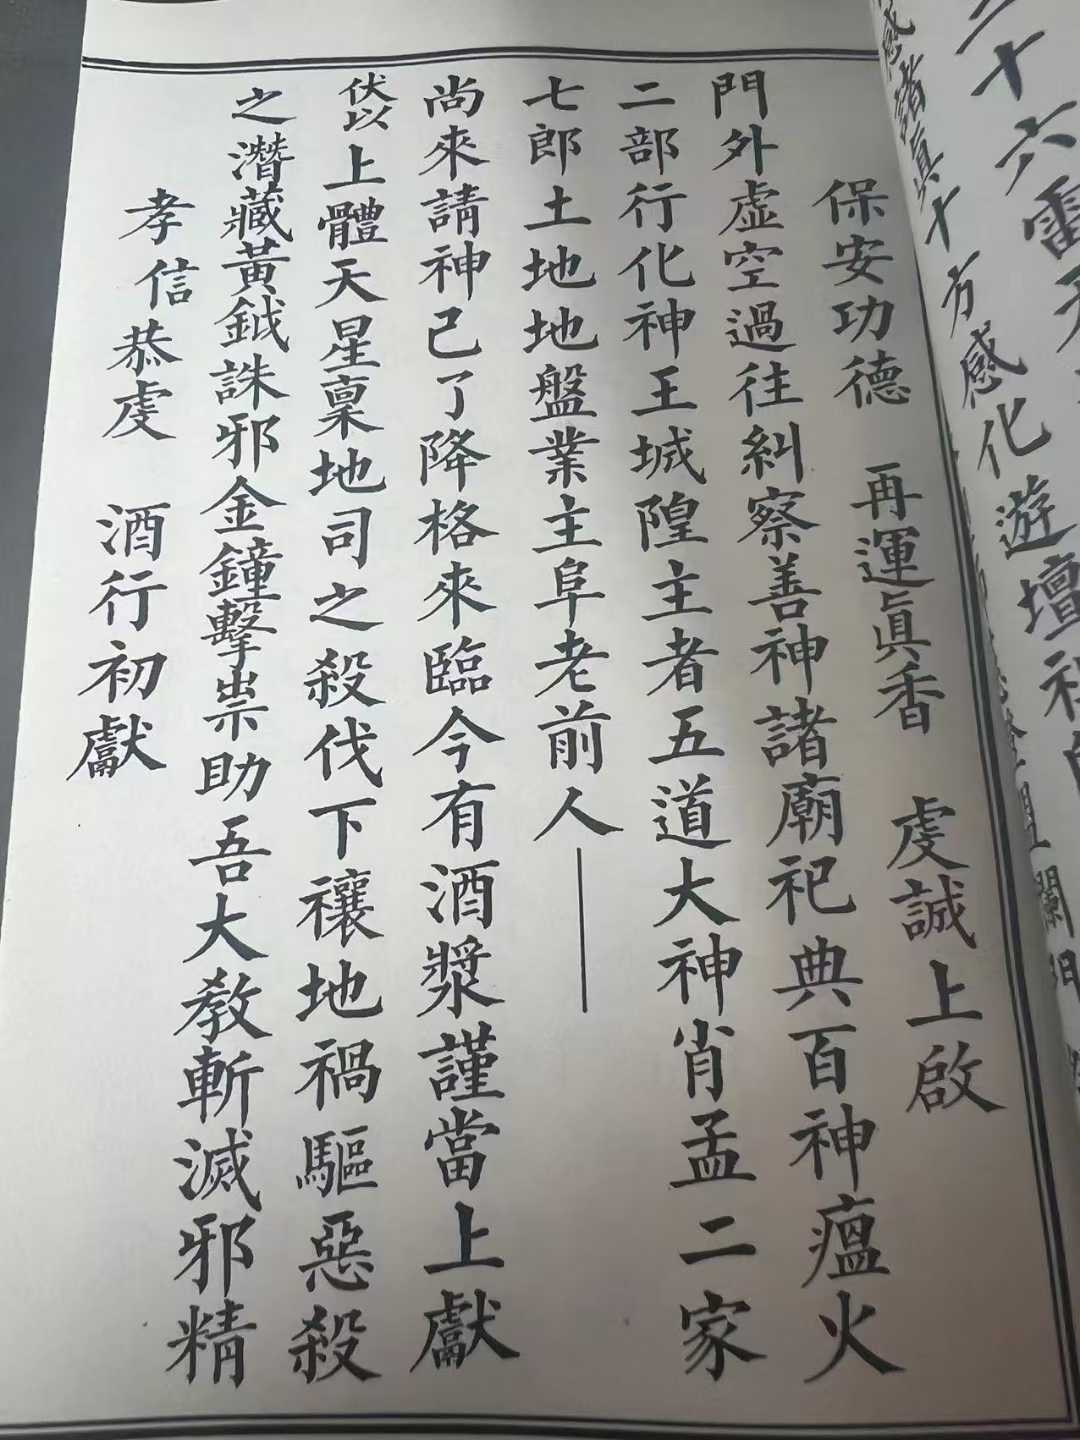 三十六雷
感諸真十方感化遊壇
保安功德　再運眞香　虔誠上啟
門外虛空過往糾察善神諸廟祀典百神瘟火
二部行化神王城隍主者五道大神肖孟二家
七郎土地地盤業主阜老前人——
尚來請神已了降格來臨今有酒漿謹當上獻
伏以上體天星稟地司之殺伐下禳地禍驅惡殺
之潛藏黃鉞誅邪金鐘擊祟助吾大教斬滅邪精
孝信恭虔　酒行初獻